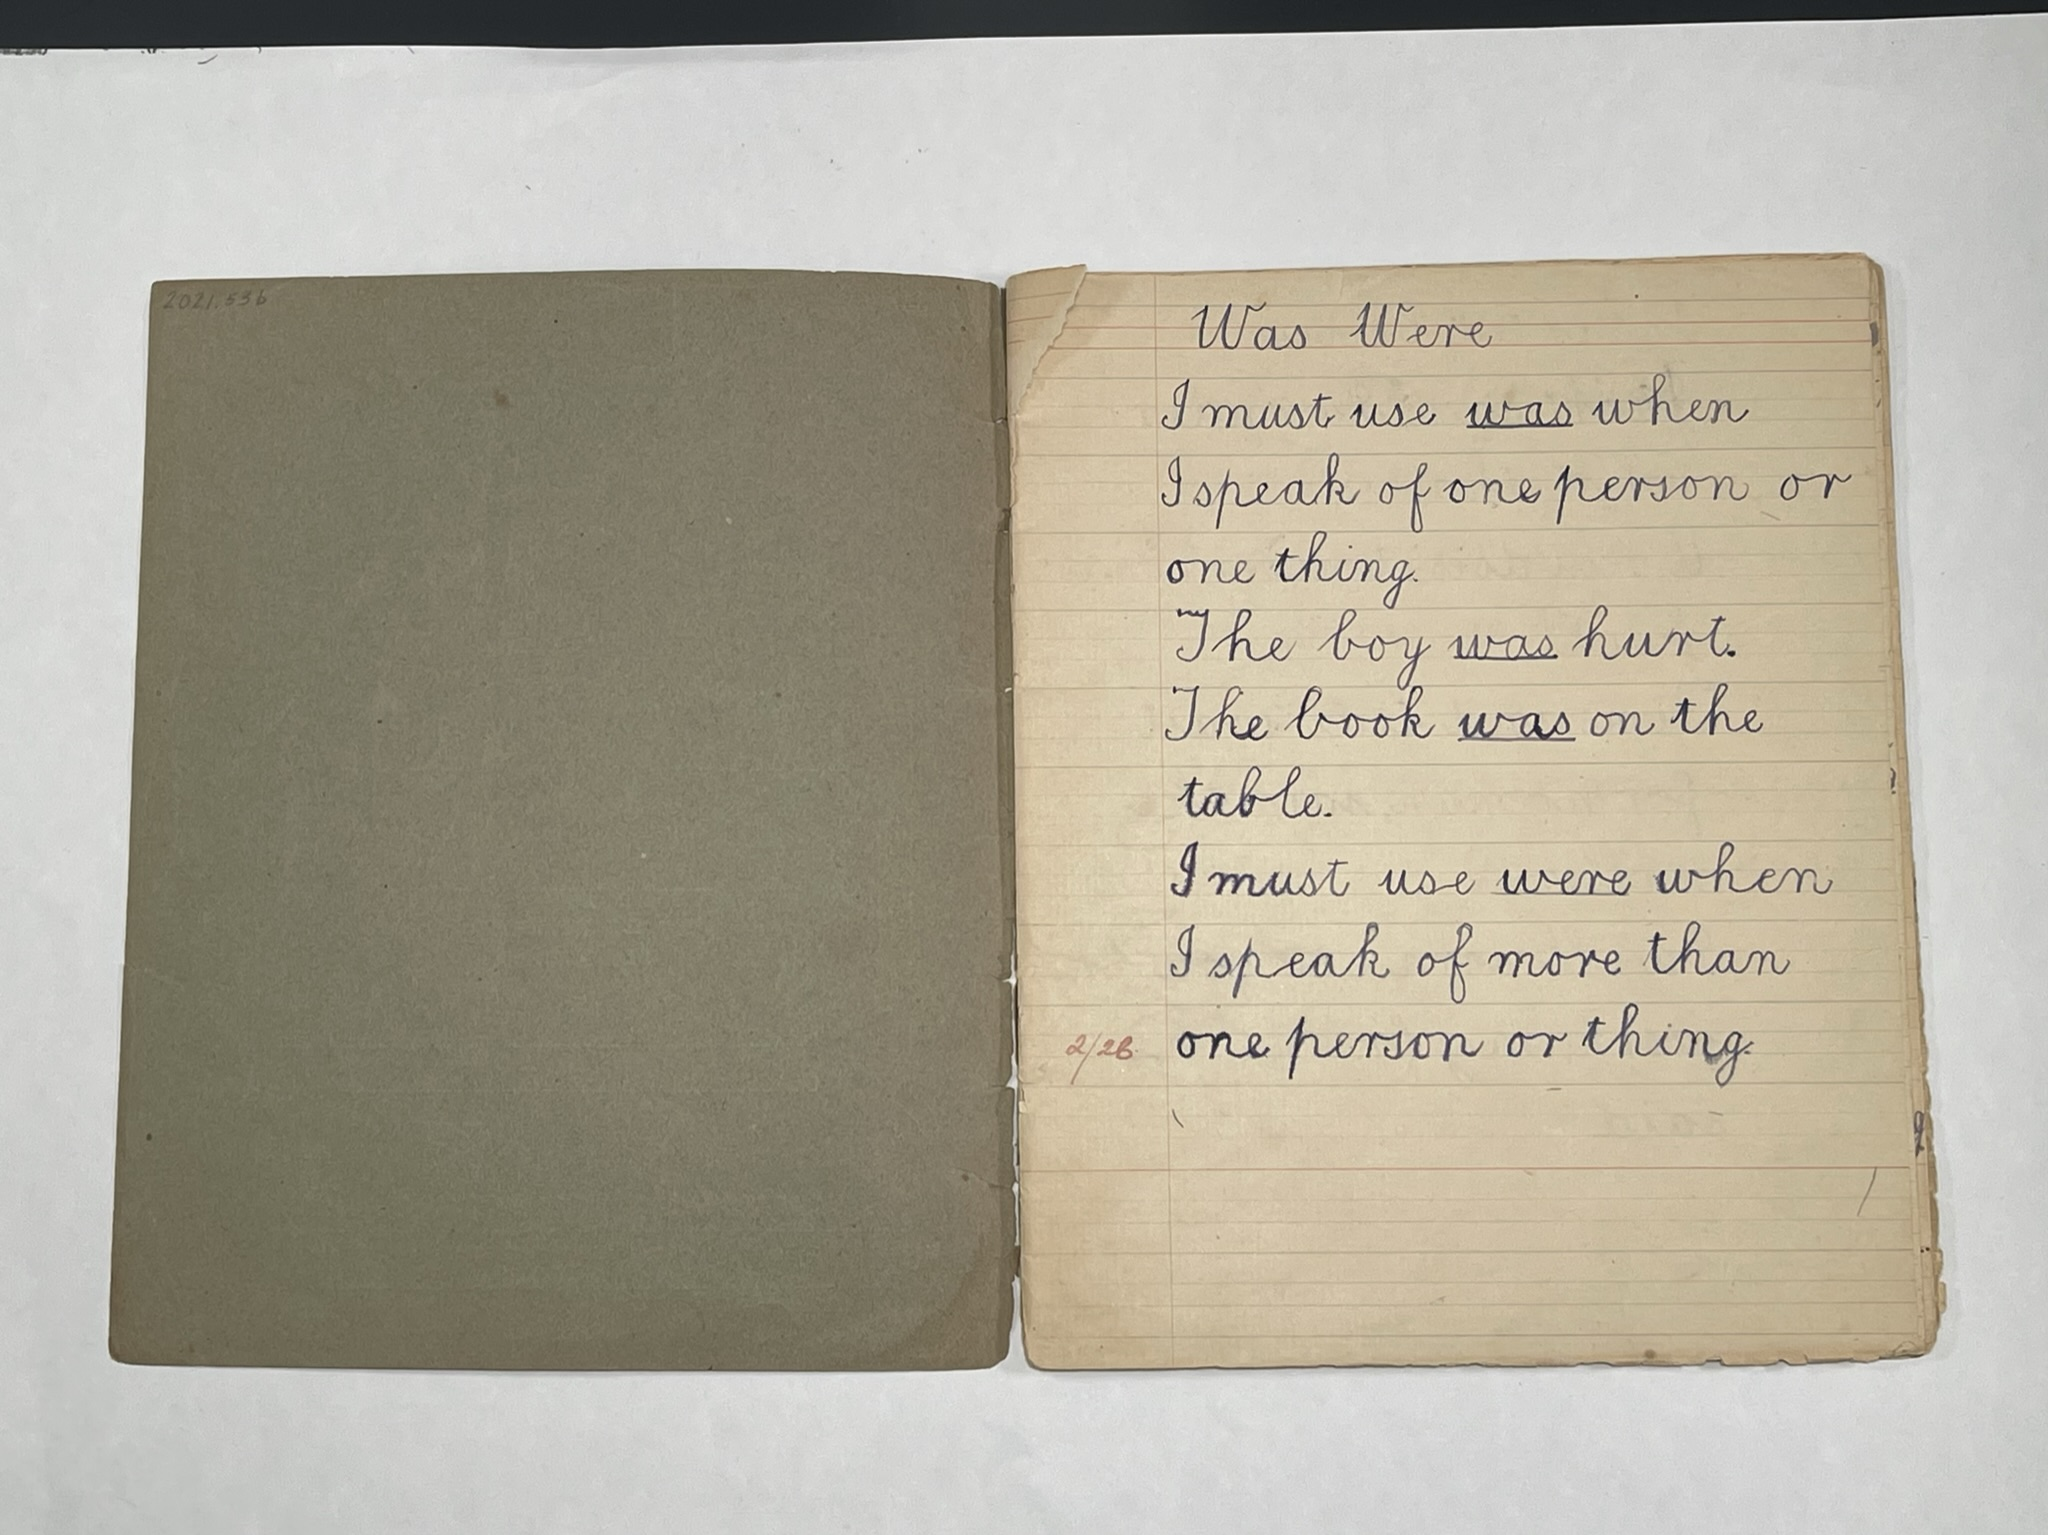 2021.536
Was Were
I must use was when
I speak of one person or
one thing.
The boy was hurt.
The book was on the
table.
I must use were when
I speak of more than
2/26 one person or thing.